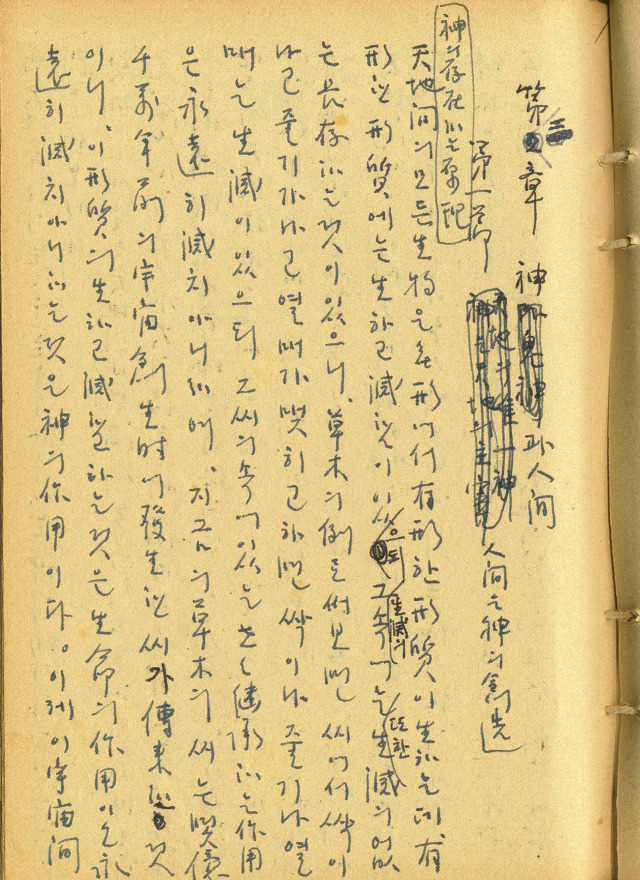 第三章 神과人間
第一節 人間은神의創造
神의存在하는原理
天地間의모든生物은無形에서有形한形質이生하는데有
形한形質에는生하고滅함이있으되그속에는또한生滅의없
는長存하는것이있으니、草木의例를써보면씨에서싹이
나고줄기가나고열매가맺히고하면싹이나줄기나열
매는生滅이있으되그씨의속에있는繼承하는作用
은永遠히滅치아니하며、지금의草木의씨는
千萬年前의宇宙創生時에發生한씨가傳来한것
이니、이形質의生하고滅함하는것은生命의作用이요永
遠히滅치아니하는것은神의作用이다。이제이宇宙間